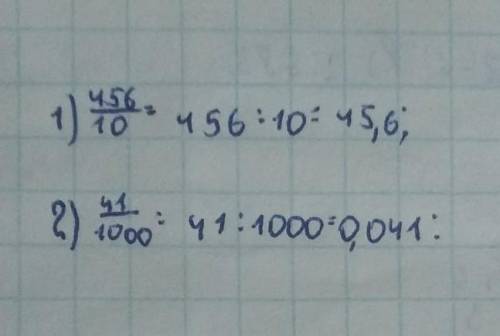 1) 456/10 = 456 : 10 = 45,6;
2) 41/1000 = 41 : 1000 = 0,041 :